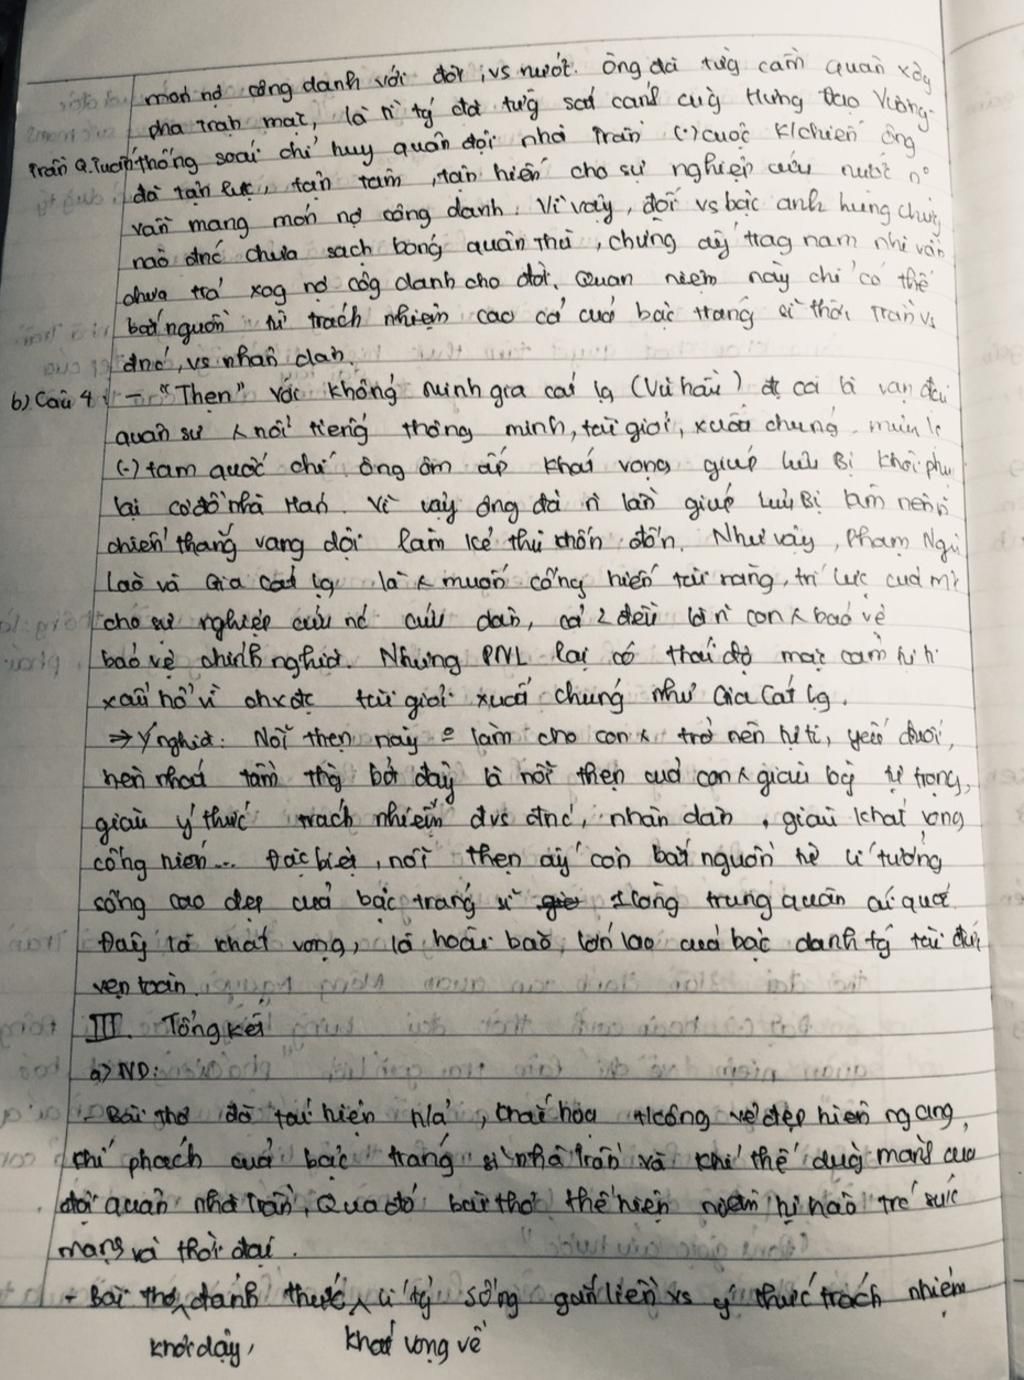 món nợ công danh với đời, vs nước. Ông đã từg cầm quân xôg
pha trận mạc, là vị tg đã từg sát cánh cùg Hưng Đạo Vương
Trần Q.Tuấn thống soái chỉ huy quân đội nhà Trần (·) cuộc k/chiến ông
đã tận lực, tận tâm, tận hiến cho sự nghiệp cứu nước n°
vẫn mang món nợ công danh. Vì vậy, đối vs bậc anh hùng chừg
nào đnć chưa sạch bóng quân thù, chừng ấy trag nam nhi vẫn
chưa trả xog nợ côg danh cho đời. Quan niệm này chỉ có thể
bắt nguồn từ trách nhiệm cao cả của bậc tráng sĩ thời Trần vs
đnć, vs nhân dân.
b) Câu 4: - "Thẹn" với Khổng Minh Gia Cát Lg (Vũ hầu)
quân sư nổi tiếng thông minh, tài giỏi, xuất chúng
(·) tam quốc chí. Ông ôm ấp khát vọng giúp Lưu Bị khôi phụ
lại cơ đồ nhà Hán. Vì vậy ông đã n lần giúp Lưu Bị làm nên n
chiến thắng vang dội làm kẻ thù khốn đốn. Như vậy, Phạm Ngũ
Lão và Gia Cát Lg là muốn cống hiến tài năng, trí lực của m
cho sự nghiệp cứu nć cứu dân, cả 2 đều là n con bảo vệ
bảo vệ chính nghĩa. Nhưng PNL lại có thái độ mặc cảm tự ti
xấu hổ vì chưa đc tài giỏi xuất chúng như Gia Cát Lg.
⇒ Ý nghĩa: Nỗi thẹn này làm cho con trở nên tự ti, yếu đuối,
hèn nhát tầm thg bởi đây là nỗi thẹn của con giàu lòg tự trọng,
giàu ý thức trách nhiệm đvs đnć, nhân dân, giàu khát vọng
cống hiến... Đặc biệt, nỗi thẹn ấy còn bắt nguồn từ lí tưởng
sống cao đẹp của bậc tráng sĩ 1 lòng trung quân ái quốc.
Đây là khát vọng, là hoài bão lớn lao của bậc danh tg tài đức
vẹn toàn.
III. Tổng kết
a) ND:
- Bài thơ đã tái hiện, khái hóa thcông vẻ đẹp hiên ngang,
khí phách của bậc tráng sĩ nhà Trần và khí thế dũg mãnh của
đội quân nhà Trần. Qua đó bài thơ thể hiện niềm tự hào trc sức
mạng và thời đại.
- Bài thơ đánh thức lí tg sống gắn liền vs ý thức trách nhiệm
khơi dậy, khát vọng về